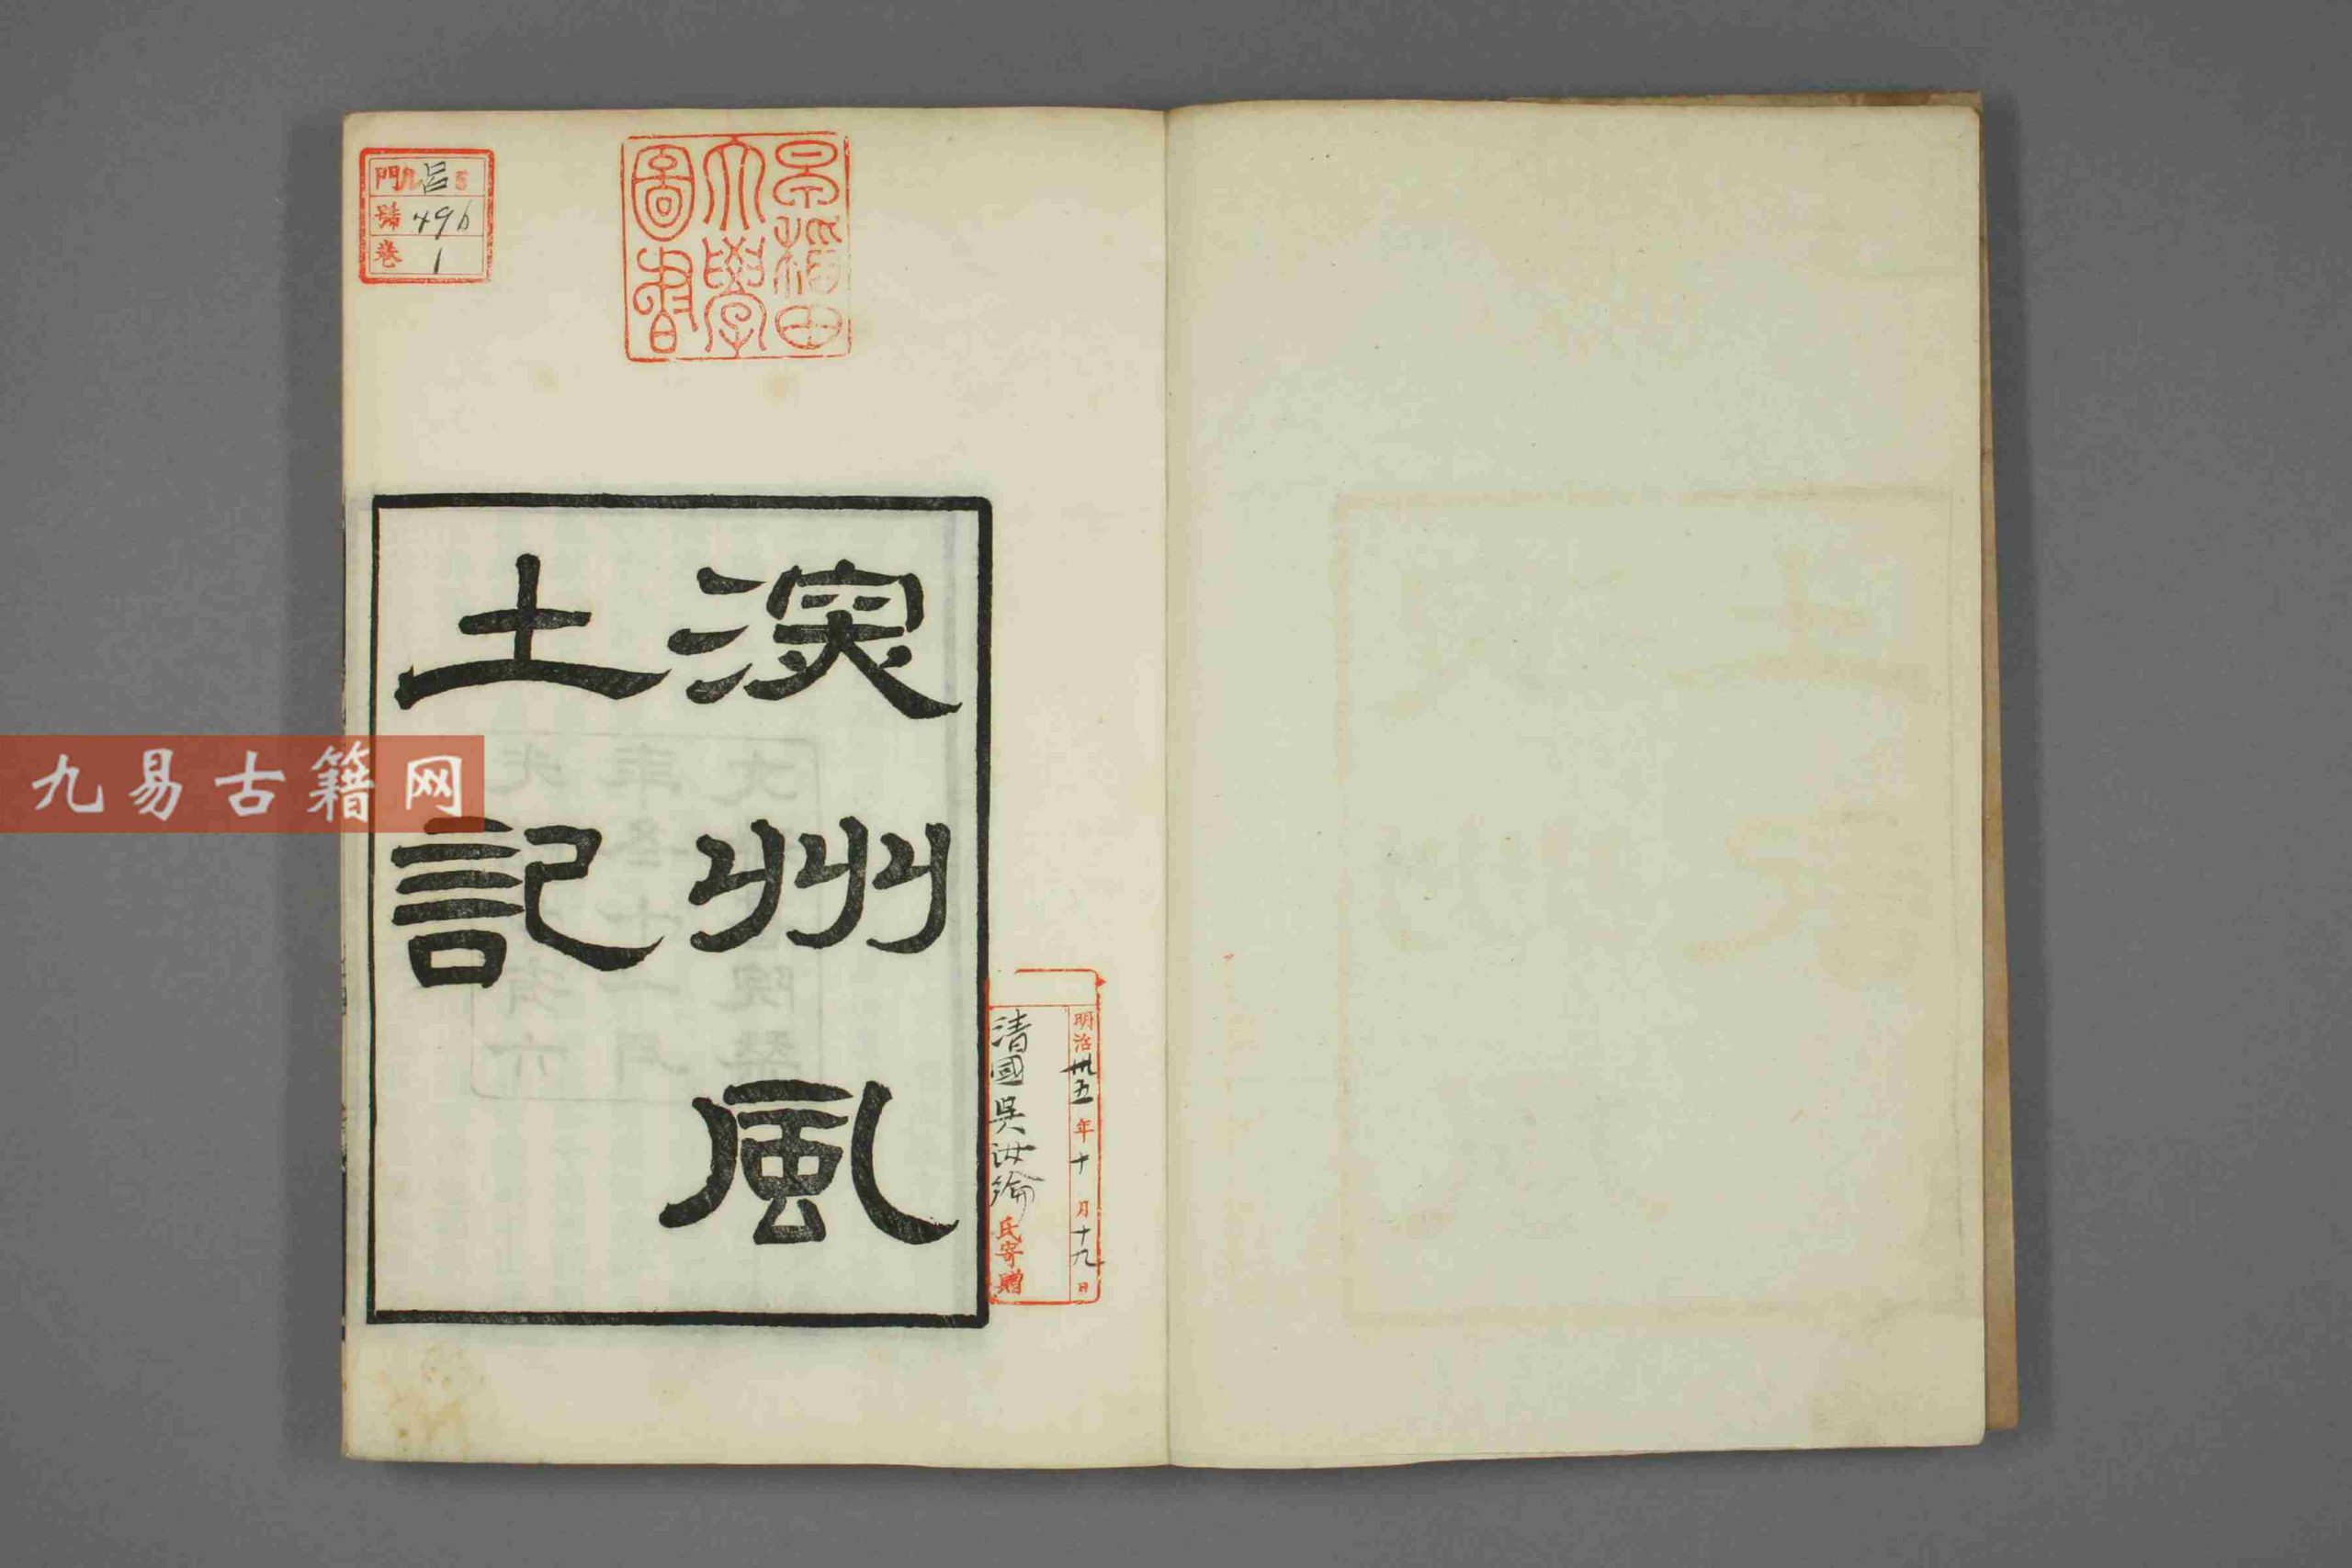 早稻田
大學
圖書
門 呂
號 496
卷 1
深州風
土記
明治卅五年十月十九日
清國吳汝綸氏寄贈
九易古籍网